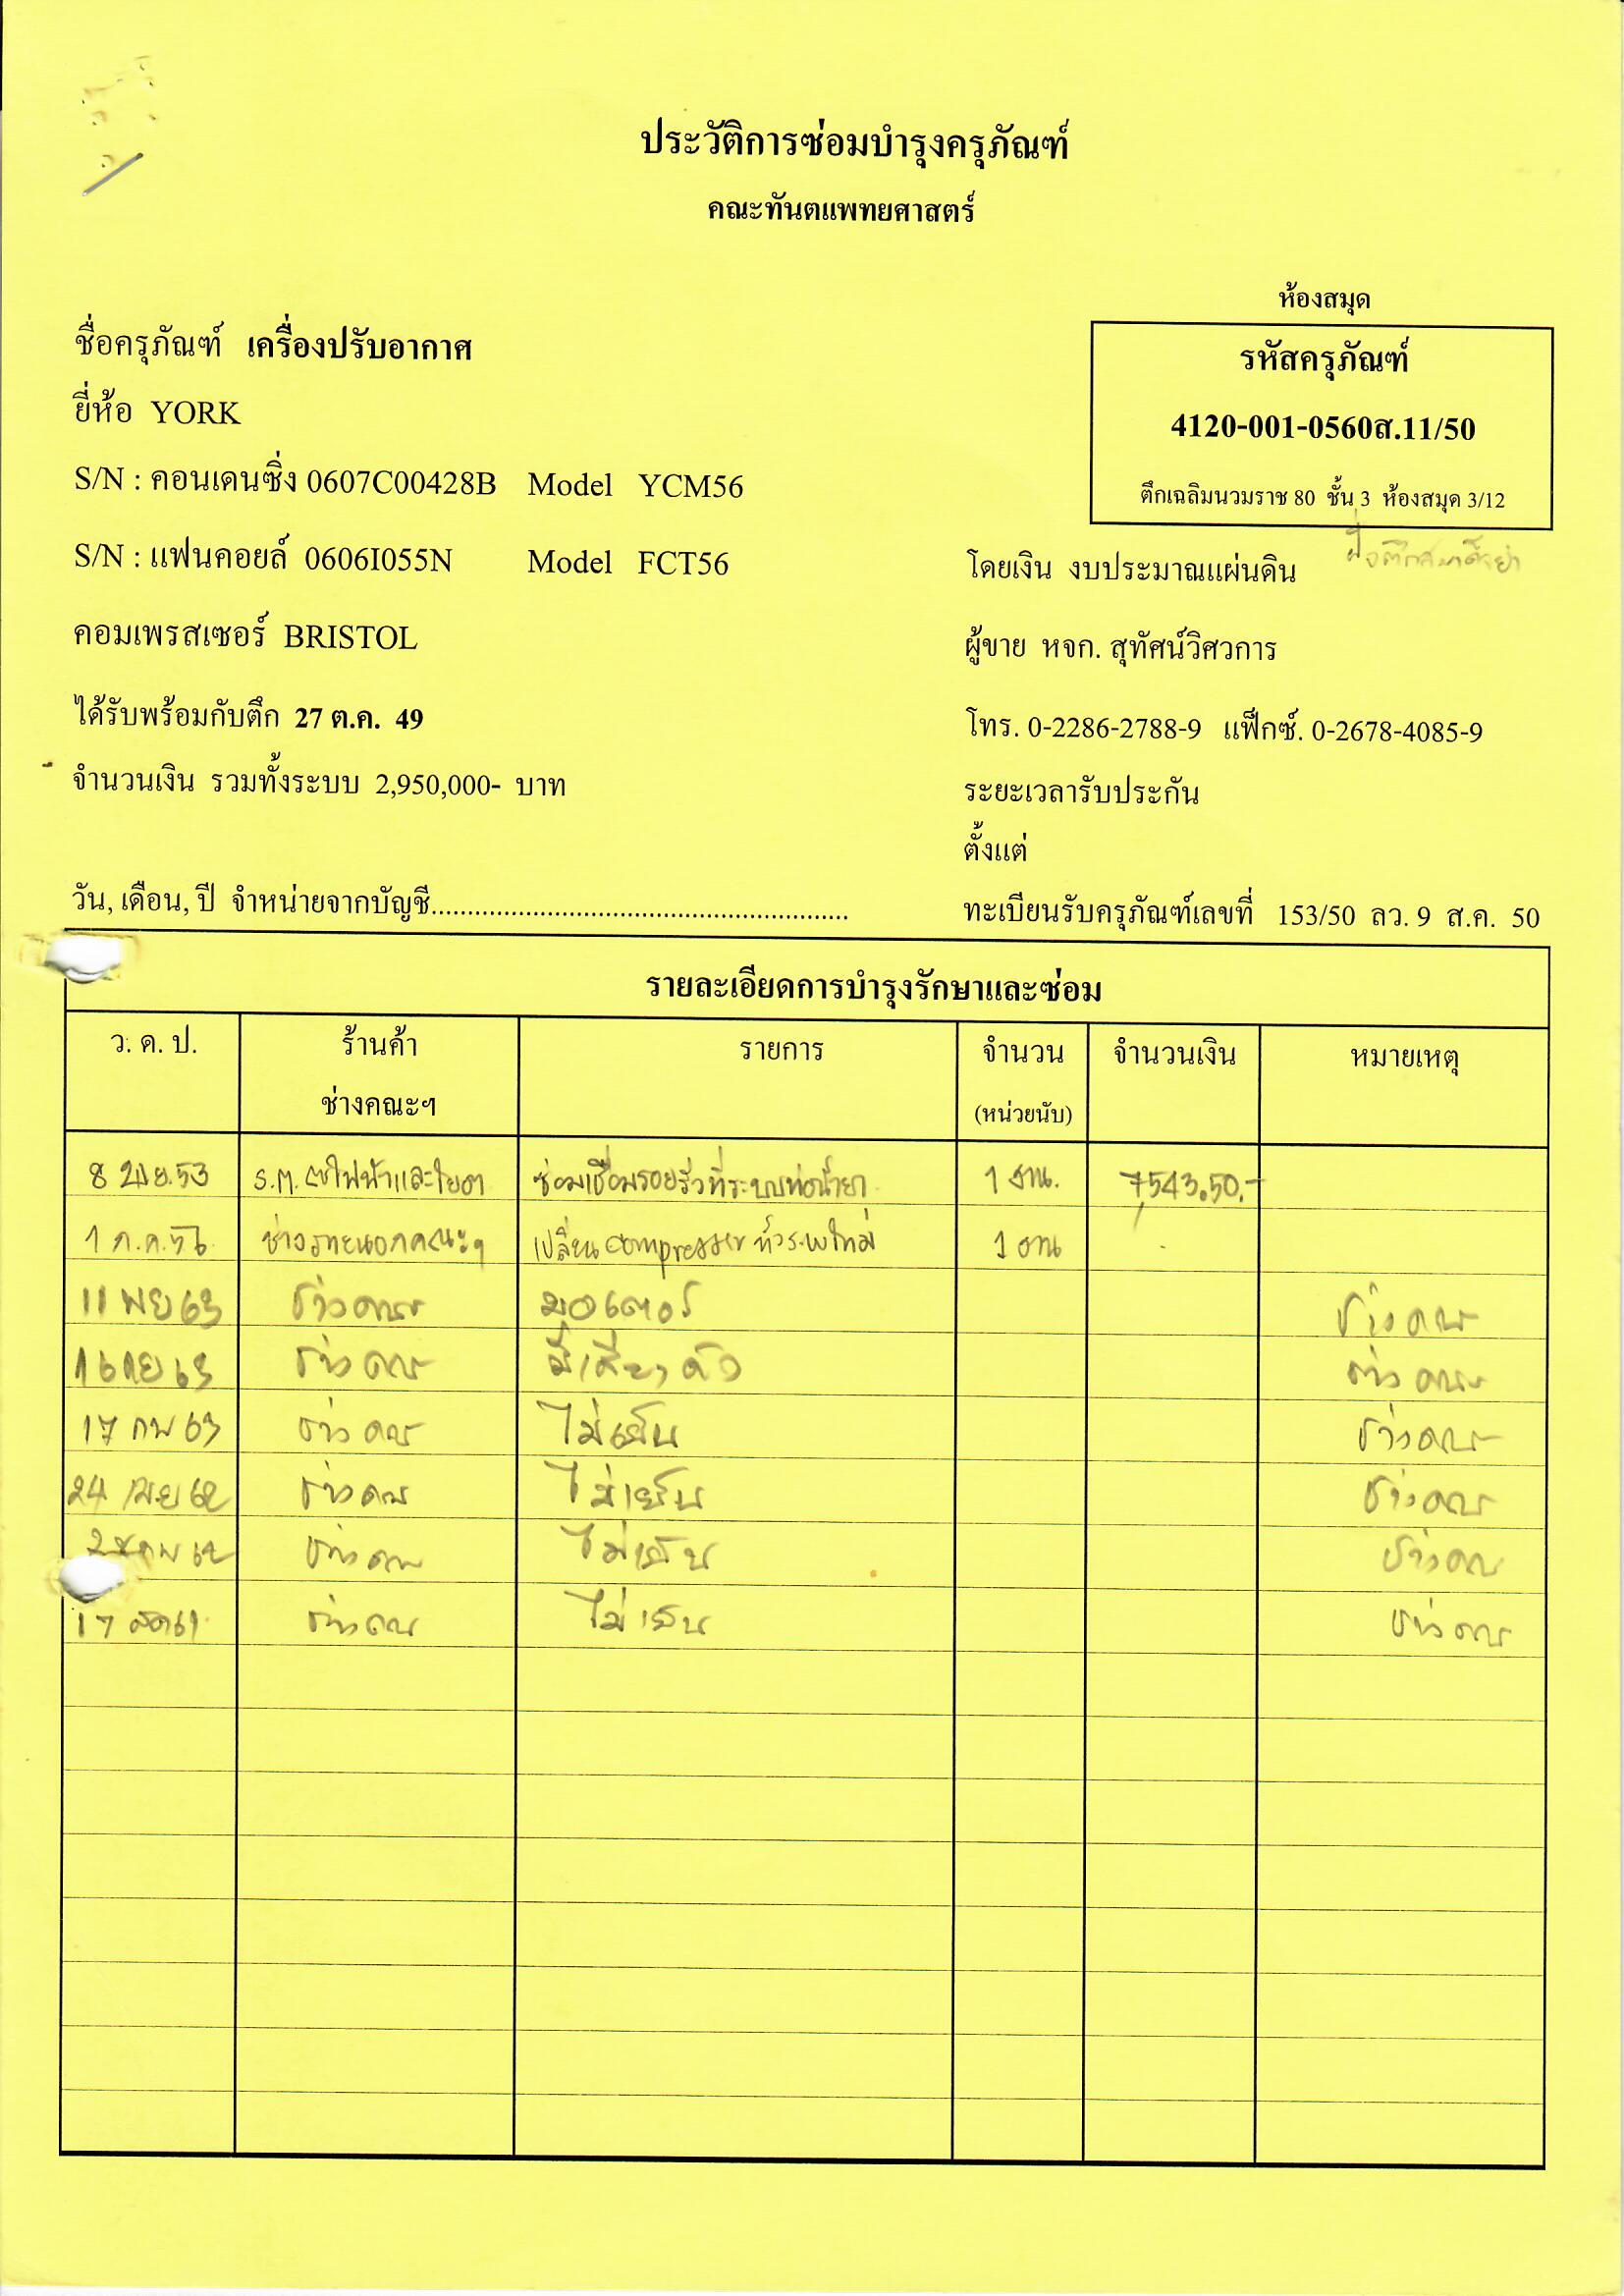 ประวัติการซ่อมบำรุงครุภัณฑ์
คณะทันตแพทยศาสตร์
ห้องสมุด
รหัสครุภัณฑ์
4120-001-0560ส.11/50
ตึกเฉลิมนวมราช 80 ชั้น 3 ห้องสมุด 3/12
ชื่อครุภัณฑ์ เครื่องปรับอากาศ
ยี่ห้อ YORK
S/N : คอนเดนซิ่ง 0607C00428B Model YCM56
S/N : แฟนคอยล์ 0606I055N Model FCT56
โดยเงิน งบประมาณแผ่นดิน
คอมเพรสเซอร์ BRISTOL
ผู้ขาย หจก. สุทัศน์วิศวการ
ได้รับพร้อมกับตึก 27 ต.ค. 49
โทร. 0-2286-2788-9 แฟ็กซ์. 0-2678-4085-9
จำนวนเงิน รวมทั้งระบบ 2,950,000- บาท
ระยะเวลารับประกัน
ตั้งแต่
วัน, เดือน, ปี จำหน่ายจากบัญชี.........................................................
ทะเบียนรับครุภัณฑ์เลขที่ 153/50 ลว. 9 ส.ค. 50
รายละเอียดการบำรุงรักษาและซ่อม
ว. ด. ป. ร้านค้า รายการ จำนวน จำนวนเงิน หมายเหตุ
ช่างคณะฯ (หน่วยนับ)
8 53 ซ่อมเชื่อมรอยรั่วที่ระบบท่อน้ำยา 1 งาน. 7,543.50.-
1 ก.ค. ช่างภายนอกคณะฯ เปลี่ยน compressor ทั้งระบบใหม่ 1 งาน
11 พย 63 ช่างคณะ มอเตอร์ ช่างคณะ
63 ช่างคณะ มีเสียงดัง ช่างคณะ
17 กพ 63 ช่างคณะ ไม่เย็น ช่างคณะ
24 เมย 62 ช่างคณะ ไม่เย็น ช่างคณะ
กพ 62 ช่างคณะ ไม่เย็น ช่างคณะ
17 61 ช่างคณะ ไม่เย็น ช่างคณะ